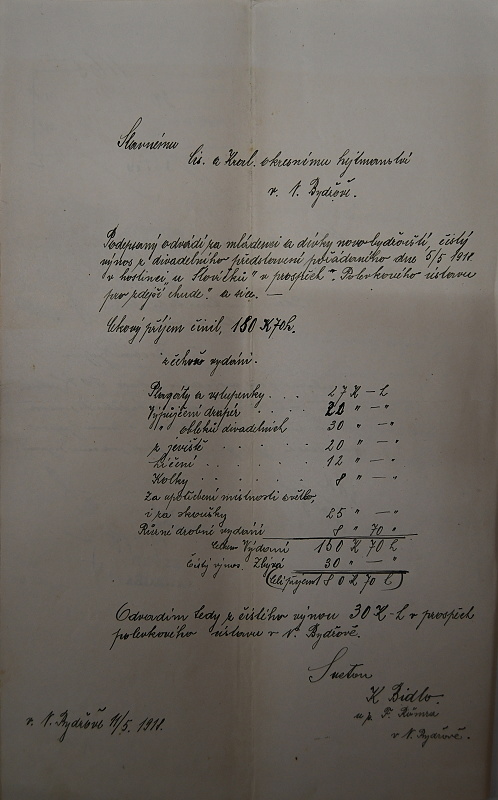 Slavnému
Cís. a Král. okresnímu hejtmanství
v N. Bydžově.
Podepsaný odvádí za mládenci a dívky novobydžovští, čistý
výnos z divadelního představení pořádaného dne 5/5 1918.
v hostinci „u Slavíčků" v prospěch „Polévkového ústavu
pro zdejší chudé" a sice. —
Celkový příjem činil, 180 K 70 h.
z čehož vydání.
Plagáty a vstupenky . . . 27 K – h
Výpůjčení draper . . . . 20 " — "
" obleků divadelních 30 " — "
" jeviště . . . . . 20 " — "
Líčení . . . . . . 12 " — "
Kolky . . . . . . 8 " — "
Za místnosti světlo,
i za zkoušky 25 " — "
Různé drobné vydání 8 " 70 "
Celkem Vydání 150 K 70 h
Čistý výnos. Zbývá 30 " — "
(Cel. příjem 180 K 70 h)
Odvádím tedy z čistého výnosu 30 K – h v prospěch
polévkového ústavu v N. Bydžově.
K. Bidlo.
u p. F.
v N. Bydžově.
v. N. Bydžově 11/5. 1918.